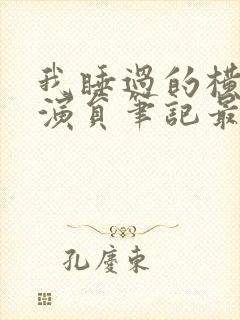 我睡過的橫
演員筆記最
孔慶東